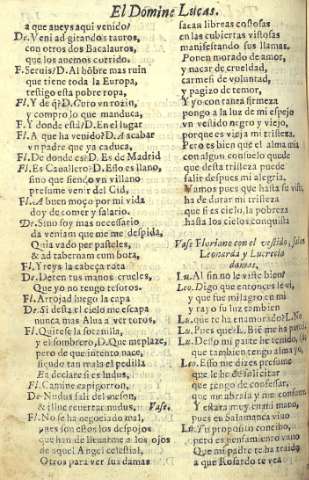 El Domine Lucas.
a que aueys aqui venido?
De. Veni ad girandos tauros,
con otros dos Bacalauros,
que los auemos corrido.
F. Seruis? D. Al hõbre mas ruin
que tiene toda la Europa,
testigo esta pobre ropa,
Fl. Y de q? D. Curo vn rozin,
y compro lo que manduca,
Fl. Y donde està? D. En el lugar
Fl. A que ha venido? D. A acabar
vn padre que ya caduca.
Fl. De donde es? D. Es de Madrid
Fl. Es Cauallero? D. Esso es llano,
sino que siendo vn villano
presume venir del Cid,
Fl. A buen moço por mi vida
doy de comer y salario.
De. Sino soy mas necessario
da veniam que me despida,
Quia vado por pasteles,
& ad tabernam cum bota,
Fl. Y reys la cabeça rota
De. Deren tus manos crueles,
Que yo no tengo resortos.
Fl. Arrojad luego la capa
De. Si desta el cielo me escapa
nunca mas Alua a ver toros,
Fl. Quitese la sotanilla,
y el sombrero, D. Que me plaze,
pero de que intento nace,
En declare si es Indus,
Fl. Camine capigorron,
De. Nudus sali del meson,
& illuc reuertar nudus. Vase.
Fl. No se ha negociado mal,
pues son estos los despojos
que han de lleuarme a los ojos
de aquel Angel celestial,
Otros para ver sus damas
sacan libreas costosas
en las cubiertas vistosas
manifestando sus llamas.
Ponen morado de amor,
y nacar de crueldad,
carmesi de voluntad,
y pagizo de temor,
Y yo con tanta firmeza
pongo a la luz de mi espejo
vn vestido negro y viejo,
porque es vieja mi tristeza.
Pero es bien que el alma mia
con algun consuelo quede
que desta tristeza puede
salir despues mi alegria.
Vamos pues que hasta se vista,
ha de durar mi tristeza
que si es cielo, la pobreza
hasta los cielos conquista
Vase Floriano con el vestido, salen
Leonarda y Lucrecia
damas,
Lu. Al fin no le viste bien?
Leo. Digo que entonces le vi,
y que fue milagro en mi
y rayo su luz tambien
Lu. que te ha enamorado? L. No
Lu. Pues que? L. Biẽ me ha parecido
Lu. Desso mi parte he venido,
que tambien tengo alma yo,
Leo. Esso me dizes presume
que le he de solicitar
que tengo de confessar,
que me abrasa y me consume
Y estarà muy en mi mano,
pues en Salamanca viuo
Lu. Tu proposito concibo,
pero es pensamiento vano
Que mi padre te ha traido
a que Rosardo te vea